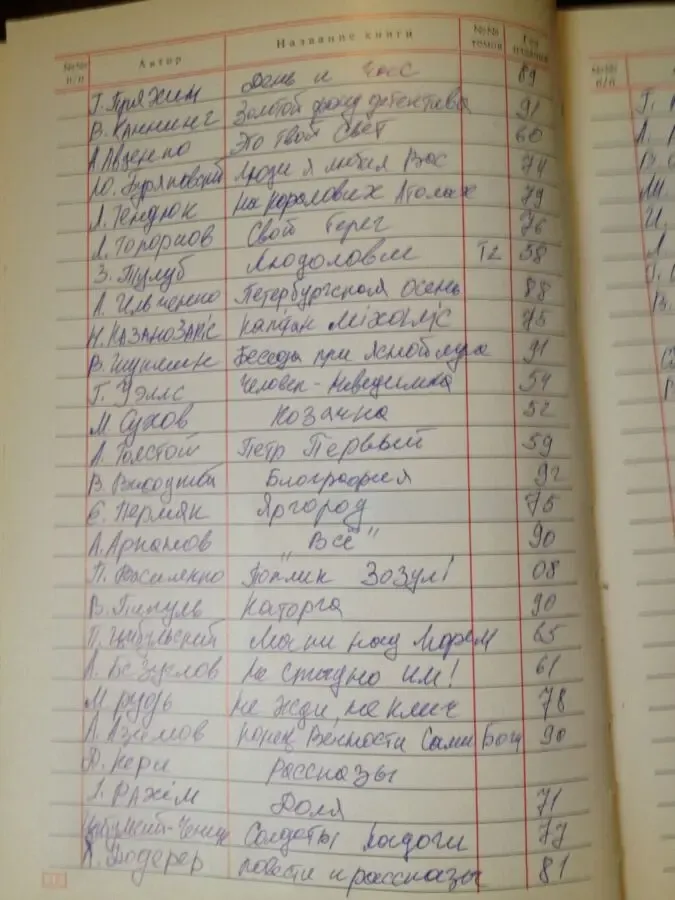 №№ п/п Автор Название книги №№ томов Год издания
Г. Пряхин День и час 89
В. Каннинг Золотой фонд детектива 91
А. Авдеенко Это твой свет 60
Ю. Буряковский Люди я любил Вас 74
Л. Тендюк На коралових Атолах 79
Л. Топорков Свой берег 76
З. Тулуб Людоловы Т2 58
А. Ильченко Петербургская осень 88
Н. Казандзакіс Капітан Міхаліс 75
В. Шукшин Беседы при Ясной луне 91
Г. Уэллс Человек-Неведимка 54
М Сухов Козачка 52
А. Толстой Петр Первый 59
В. Биография 92
Є. Пермяк Яргород 75
А. Арканов „Все" 90
П. Василенко Поклик Зозулі 08
В. Пикуль Каторга 90
П. Цибульский Маки над Морем 65
А. Безуглов Не стыдно им! 61
М Рудь Не жди, не клич 78
А. Азимов Конец Вечности Сами Боги 90
Д. Кери Рассказы
І. Рахім Доля 71
Солдаты 77
Повести и рассказы 81
№№ п/п